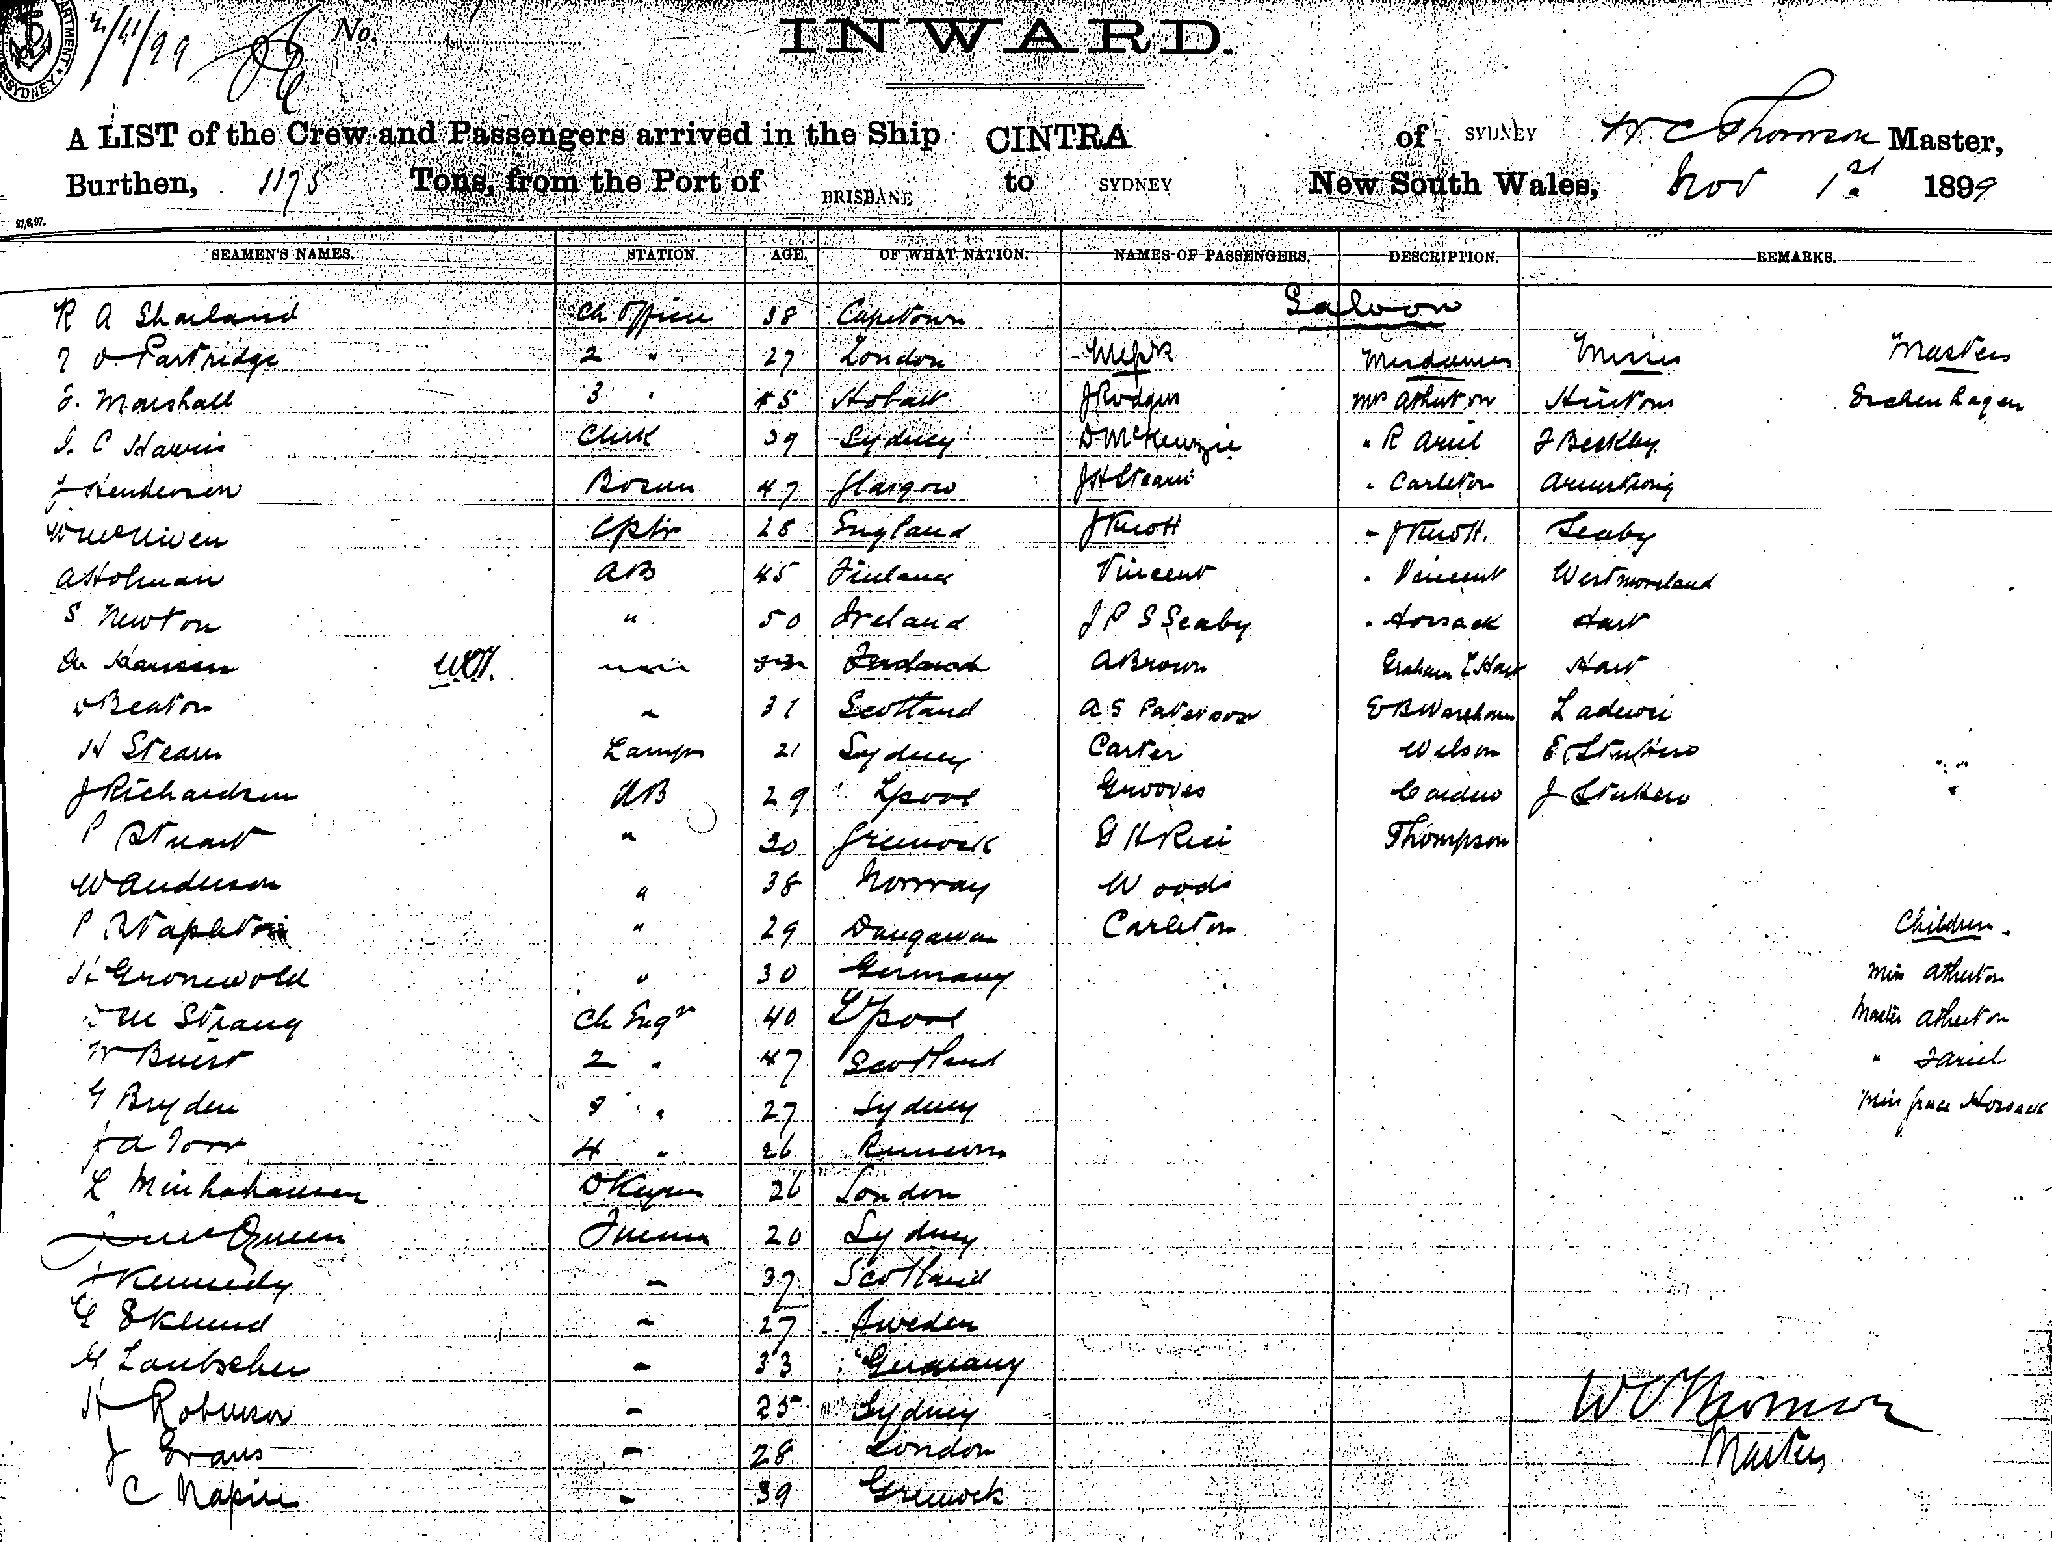 2/11/99 No.
INWARD.
A LIST of the Crew and Passengers arrived in the Ship CINTRA of SYDNEY W C Thomson Master,
Burthen, 1175 Tons, from the Port of BRISBANE to SYDNEY New South Wales, Nov 1st 1899
SEAMEN'S NAMES. STATION AGE. OF WHAT NATION. NAMES OF PASSENGERS. DESCRIPTION. REMARKS.
Saloon
R A Sharland Ch Officer 38 Capetown
Partridge 2 " 27 London Messrs Mesdames Misses Masters
Marshall 3 " 45 Hobart J Rodgers Mrs Atherton Hinton Eschenhagen
C Harris Clerk 39 Sydney D McKenzie " R Ariel Beckley
J Henderson Bosun 47 Glasgow J H Stearn " Carleton Armstrong
W McNiven Cptr 28 England J Knott " J Knott. Seaby
A Holman AB 45 Finland Vincent " Vincent Westmoreland
S Newton " 50 Ireland J P S Seaby " Horsack Hart
Hansen A Brown Graham Hart Hart
Beaton " 31 Scotland A S Paterson
H Stearn Lamps 21 Sydney Carter Wilson
J Richardson AB 29 Lpool Grooves
P Stuart " 30 Greenock Thompson
W Anderson " 38 Norway Woods
P Stapleton " 29 Carleton Children.
H Gronewold " 30 Germany Miss Atherton
M Strang Ch Engr 40 Lpool Master Atherton
W Buist 2 " 47 Scotland "
G Bryden 3 " 27 Sydney Miss Grace Horsack
J A Torr 4 " 26
L 26 London
McQueen Fireman 20 Sydney
J Kennedy " 37 Scotland
E Eklund " 27 Sweden
G Laubscher " 33 Germany
H Robinson " 25 Sydney W C Thomson
J Evans " 28 London Master
C Napier " 39 Greenock